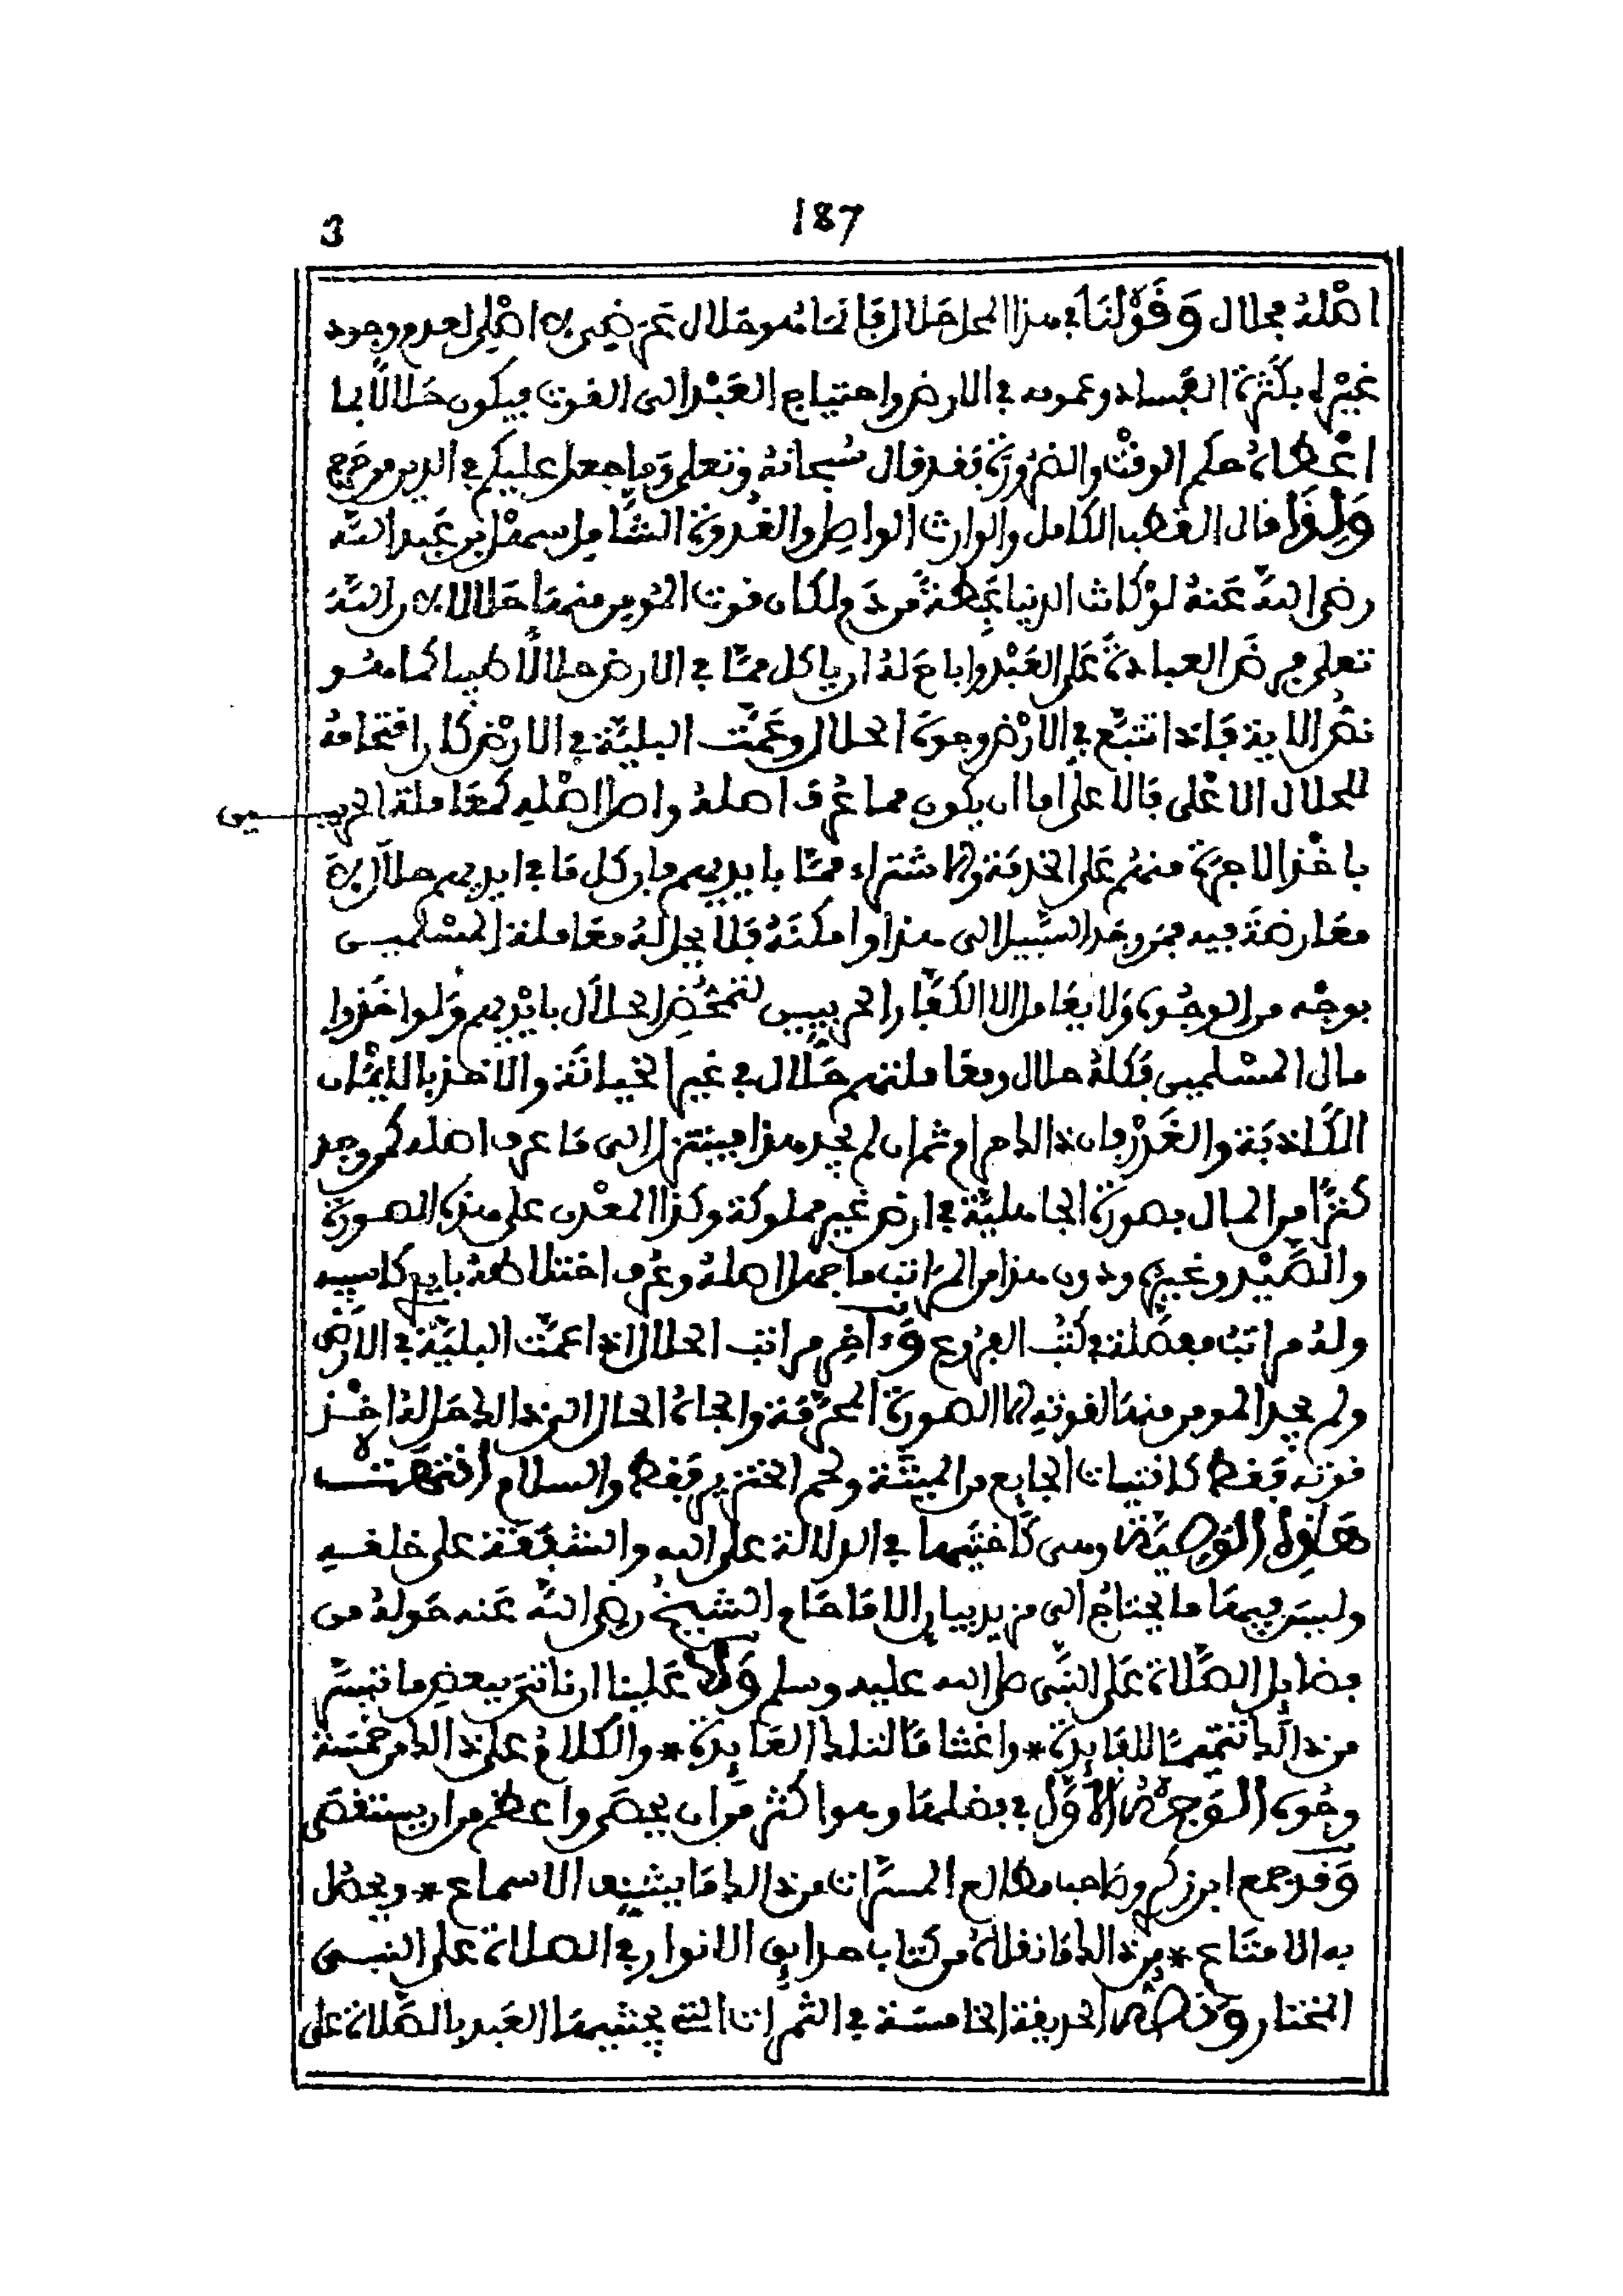 3 187
اصله محلال وقولنا في هذا المحل حلال فإنما هو حلال عرضي لا اصلي لعدم وجود
غيره بكثرة الفساد وعمومه في الارض واحتياج العبد الى القوت فيكون حلالا بما
اعطاه حكم الوقت والضرورة فقد قال سبحانه وتعلى وما جعل عليكم في الدين من حرج
ولذا قال القطب الكامل والوارث الواصل والقدوة الشامل سهل بن عبد الله
رضي الله عنه لو كانت الدنيا عبطة من دم لكان قوت المومن منها حلالا لان الله
تعلى فرض العبادة على العبد واباح له ان ياكل مما في الارض حلالا طيبا كما هو
نص الاية فإذا تتبع في الارض وجوه الحلال وعمت البلية في الارض كان اقتحامه
للحلال الاعلى فالاعلى اما ان يكون مما عرف اصله واصل اصله كمعاملة الحربيين
باخذ الاجرة منهم على الخدمة والاشتراء مما بايديهم فإن كل ما في ايديهم حلال لا
معارضة فيه فمن وجد السبيل الى هذا وامكنه فلا يحل له معاملة المسلمين
بوجه من الوجوه ولا يعامل الا الكفار الحربيين لتمحض الحلال بايديهم ولو اخذوا
مال المسلمين فكله حلال ومعاملتهم حلال في غير الخيانة والاخذ بالايمان
الكاذبة والغدر فان ذالك حرام ثم ان لم يجد هذا فيتنزل الى ما عرف اصله كمن وجد
كنزا من المال بصورة الجاهلية في ارض غير مملوكة وكذا المعدن على هذه الصورة
والصيد وغيره ودون هذا من المراتب ما جهل اصله وعرف اختلاطه بايدي كاسبيه
وله مراتب مفصلة في كتب الفروع وءاخر مراتب الحلال اذا عمت البلية في الارض
ولم يجد المومن منها لقوته الا الصورة المحرمة والجاه الحال الى ذالك حل له اخذ
قوته فقط كاقتيات الجايع من الميتة ولحم الخنزير فقط والسلام انتهت
هاذه الوصية وهي كاختيها في الدلالة على الله والشفقة على خلقه
وليس فيها ما يحتاج الى مزيد بيان الا ما حام الشيخ رضي الله عنه حوله من
فضايل الصلاة على النبي صلى الله عليه وسلم ولا علينا ان ناتي ببعض ما تيسر
من ذالك تتميما للفايدة * واغتناما لتلك العايدة * والكلام على ذالك من خمسة
وجوه الوجه الاول في فضلها وهو اكثر من ان يحصى واعظم من ان يستقصى
وقد جمع ابن زكري وصاحب مطالع المسرات من ذالك ما يشنف الاسماع * ويحصل
به الامتاع * من ذالك ما نقلاه من كتاب حدايق الانوار في الصلاة على النبي
المختار ونصه الحديقة الخامسة في الثمرات التي يجتنيها العبد بالصلاة على